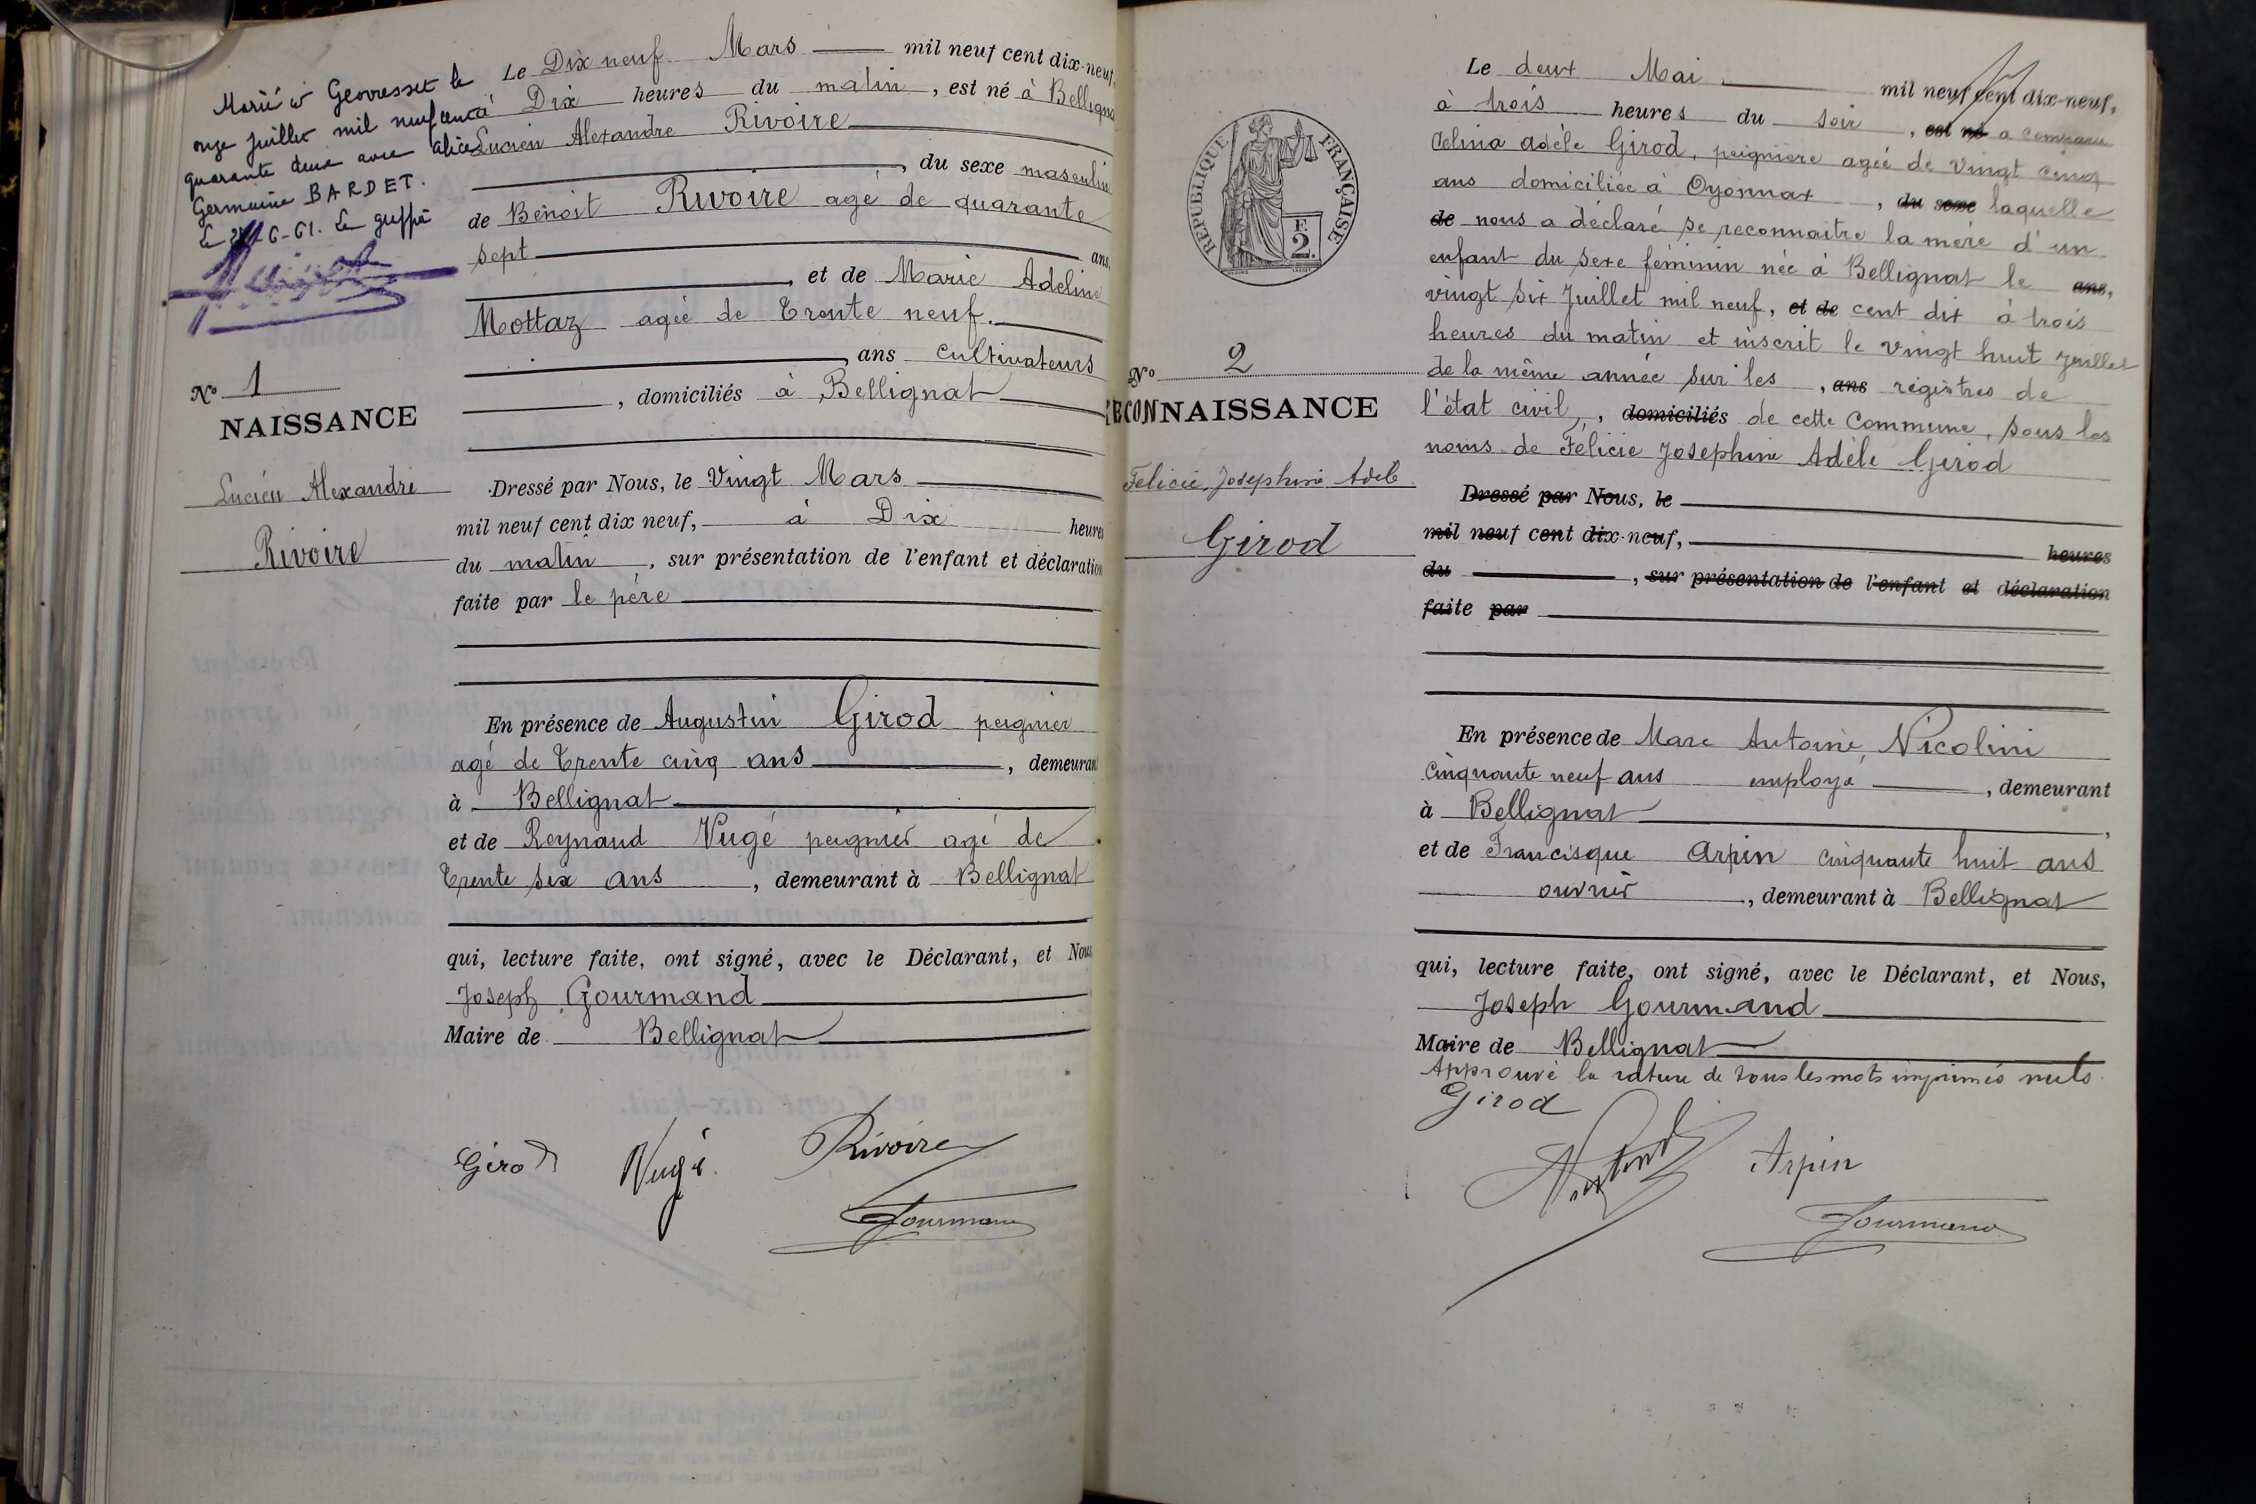 Marié à Geovresset le
onze juillet mil neuf cent
quarante deux avec Alice
Germaine BARDET.
Le 6-61. Le greffier
Nº 1
NAISSANCE
Lucien Alexandre
Rivoire
Le Dix neuf Mars mil neuf cent dix-neuf,
à Dix heures du matin, est né à Bellignat
Lucien Alexandre Rivoire
, du sexe masculin
de Benoit Rivoire agé de quarante
sept ans,
, et de Marie Adeline
Mottaz agée de Trente neuf.
, ans cultivateurs
, domiciliés à Bellignat
Dressé par Nous, le Vingt Mars
mil neuf cent dix neuf, à Dix heures
du matin, sur présentation de l'enfant et déclaration
faite par le père
En présence de Augustin Girod peignier
agé de Trente cinq ans, demeurant
à Bellignat
et de Reynaud Nugé peignier agé de
Trente six ans, demeurant à Bellignat
qui, lecture faite, ont signé, avec le Déclarant, et Nous
Joseph Gourmand
Maire de Bellignat
Girod Nugé Rivoire
Gourmand
RÉPUBLIQUE FRANÇAISE
F.
2.
Nº 2
RECONNAISSANCE
Félicie, Josephine Adele
Girod
Le deux Mai mil neuf cent dix-neuf,
à trois heures du soir, est né a comparu
Celina Adèle Girod, peignière agée de vingt cinq
ans domiciliée à Oyonnax, du sexe laquelle
de nous a déclaré se reconnaitre la mère d'un
enfant du sexe féminin née à Bellignat le ans,
vingt six Juillet mil neuf, et de cent dix à trois
heures du matin et inscrit le vingt huit Juillet
de la même année sur les, ans régistres de
l'état civil, domiciliés de cette Commune, sous les
noms de Félicie Josephine Adèle Girod
Dressé par Nous, le
mil neuf cent dix-neuf, heures
du, sur présentation de l'enfant et déclaration
faite par
En présence de Marc Antoine Nicolini
cinquante neuf ans employé, demeurant
à Bellignat,
et de Francisque Arpin cinquante huit ans
ouvrier, demeurant à Bellignat
qui, lecture faite, ont signé, avec le Déclarant, et Nous,
Joseph Gourmand
Maire de Bellignat
Approuvé la rature de tous les mots imprimés nuls.
Girod
Arpin
Gourmand